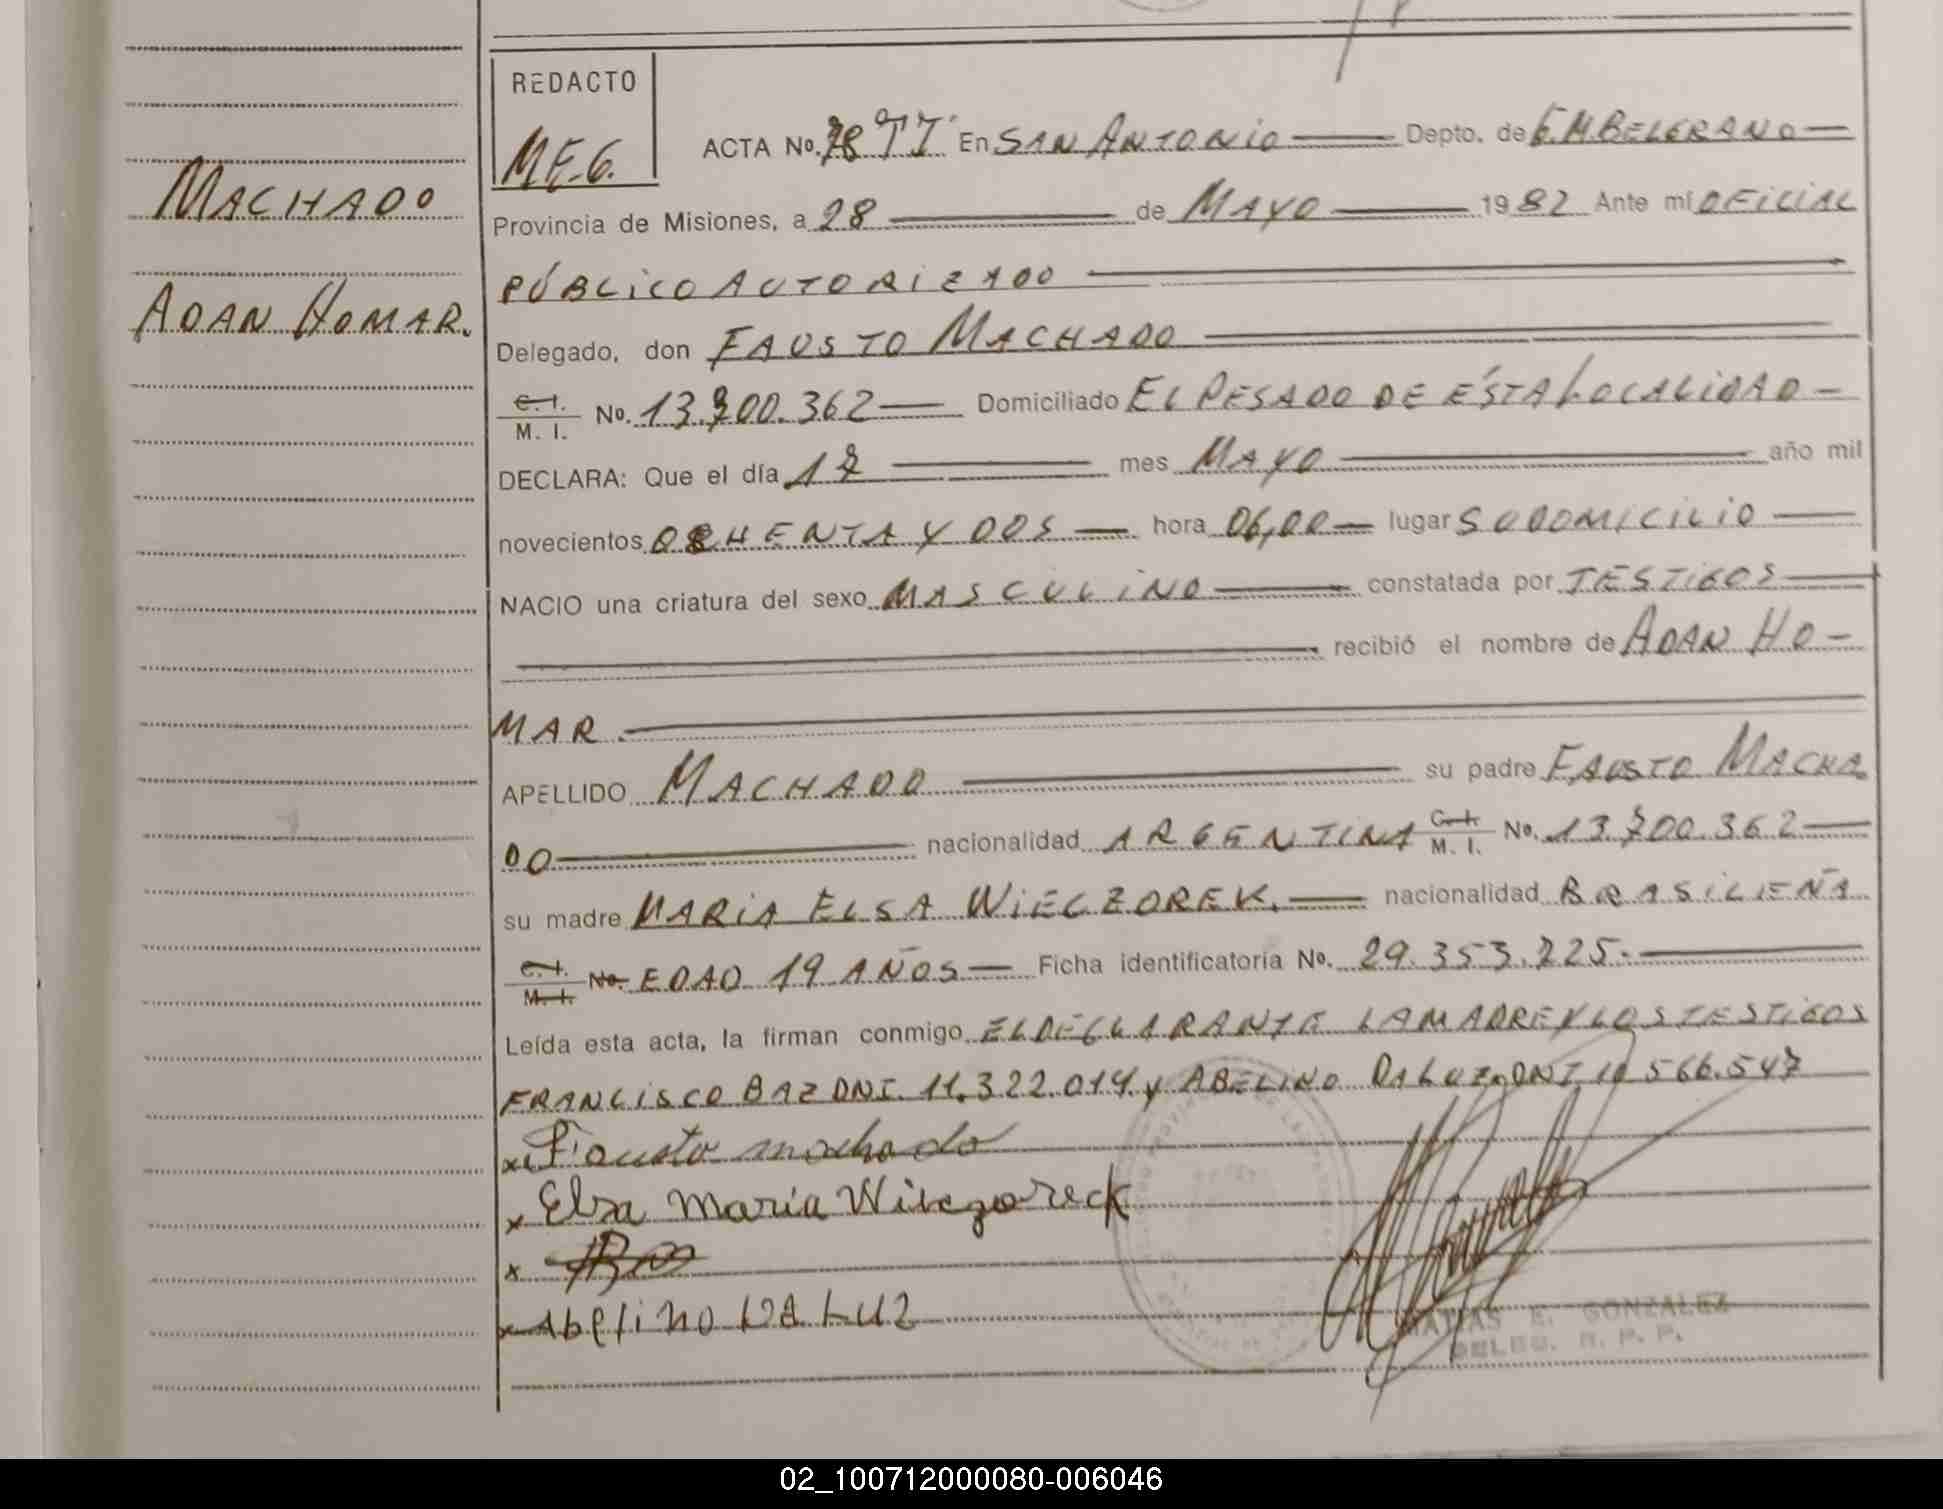 MACHADO
ADAN HOMAR.
REDACTO
M.E.G.
ACTA No. 78 TI En SAN ANTONIO Depto. de G.M.BELGRANO
Provincia de Misiones, a 28 de MAYO 1982 Ante mí OFICIAL
PÚBLICO AUTORIZADO
Delegado, don FAUSTO MACHADO
C. I. M. I. No. 13.700.362 Domiciliado EL PESADO DE ÉSTA LOCALIDAD
DECLARA: Que el día 17 mes MAYO año mil
novecientos OCHENTA Y DOS hora 06,00 lugar SU DOMICILIO
NACIO una criatura del sexo MASCULINO constatada por TESTIGOS
recibió el nombre de ADAN HO-
MAR.
APELLIDO MACHADO su padre FAUSTO MACHA
DO nacionalidad ARGENTINA C. I. M. I. No. 13.700.362
su madre MARIA ELSA WIECZOREK. nacionalidad BRASILEÑA
C. I. M. I. No. EDAD 19 AÑOS Ficha identificatoria No. 29.353.225.
Leída esta acta, la firman conmigo EL DECLARANTE LA MADRE Y LOS TESTIGOS
FRANCISCO BAZ DNI. 11.322.014. y ABELINO DA LUZ DNI. 10 566.547
x Fausto machado
x Elsa Maria Wilczoreck
x
x Abelino DA LUZ
MATIAS E. GONZALEZ
DELEG. R. P. P.
02_100712000080-006046